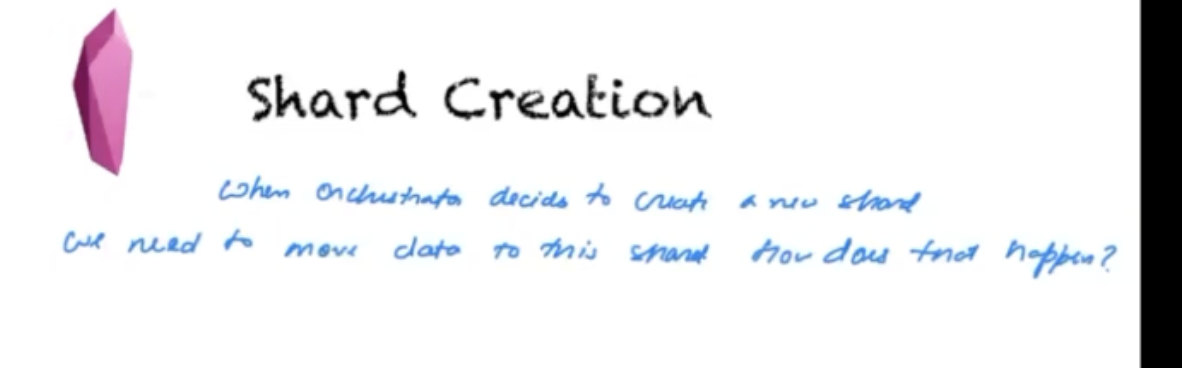 Shard Creation
When Orchestrator decides to create a new shard
we need to move data to this shard How does that happen?